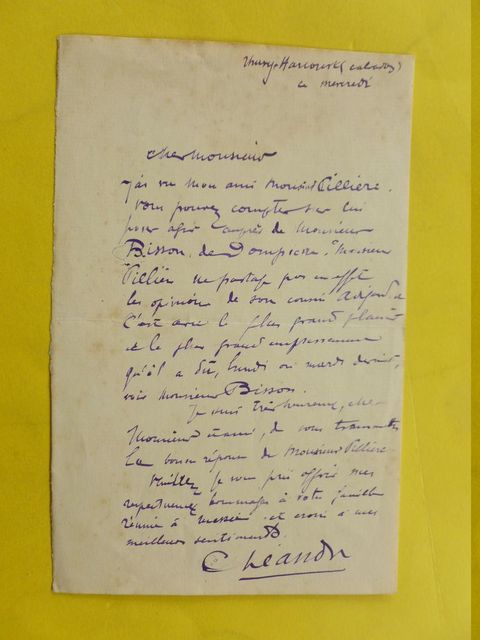 Thury-Harcourt (Calvados)
ce mercredi
cher monsieur
J'ai vu mon ami Monsieur Pillière.
Vous pouvez compter sur lui
pour agir auprès de Monsieur
Bisson, de Monsieur
Pillièr ne partage pas en effet
les opinions de son cousin
C'est avec le plus grand plaisir
et le plus grand empressement
qu'il a dû, lundi ou mardi dernier,
voir Monsieur Bisson.
Je suis très heureux, cher
Monsieur et ami, de vous transmettre
la bonne réponse de Monsieur Pillière.
Veuillez, je vous prie offrir mes
respectueux hommages à votre famille
réunie à et croire à mes
meilleurs sentiments.
C Léandre